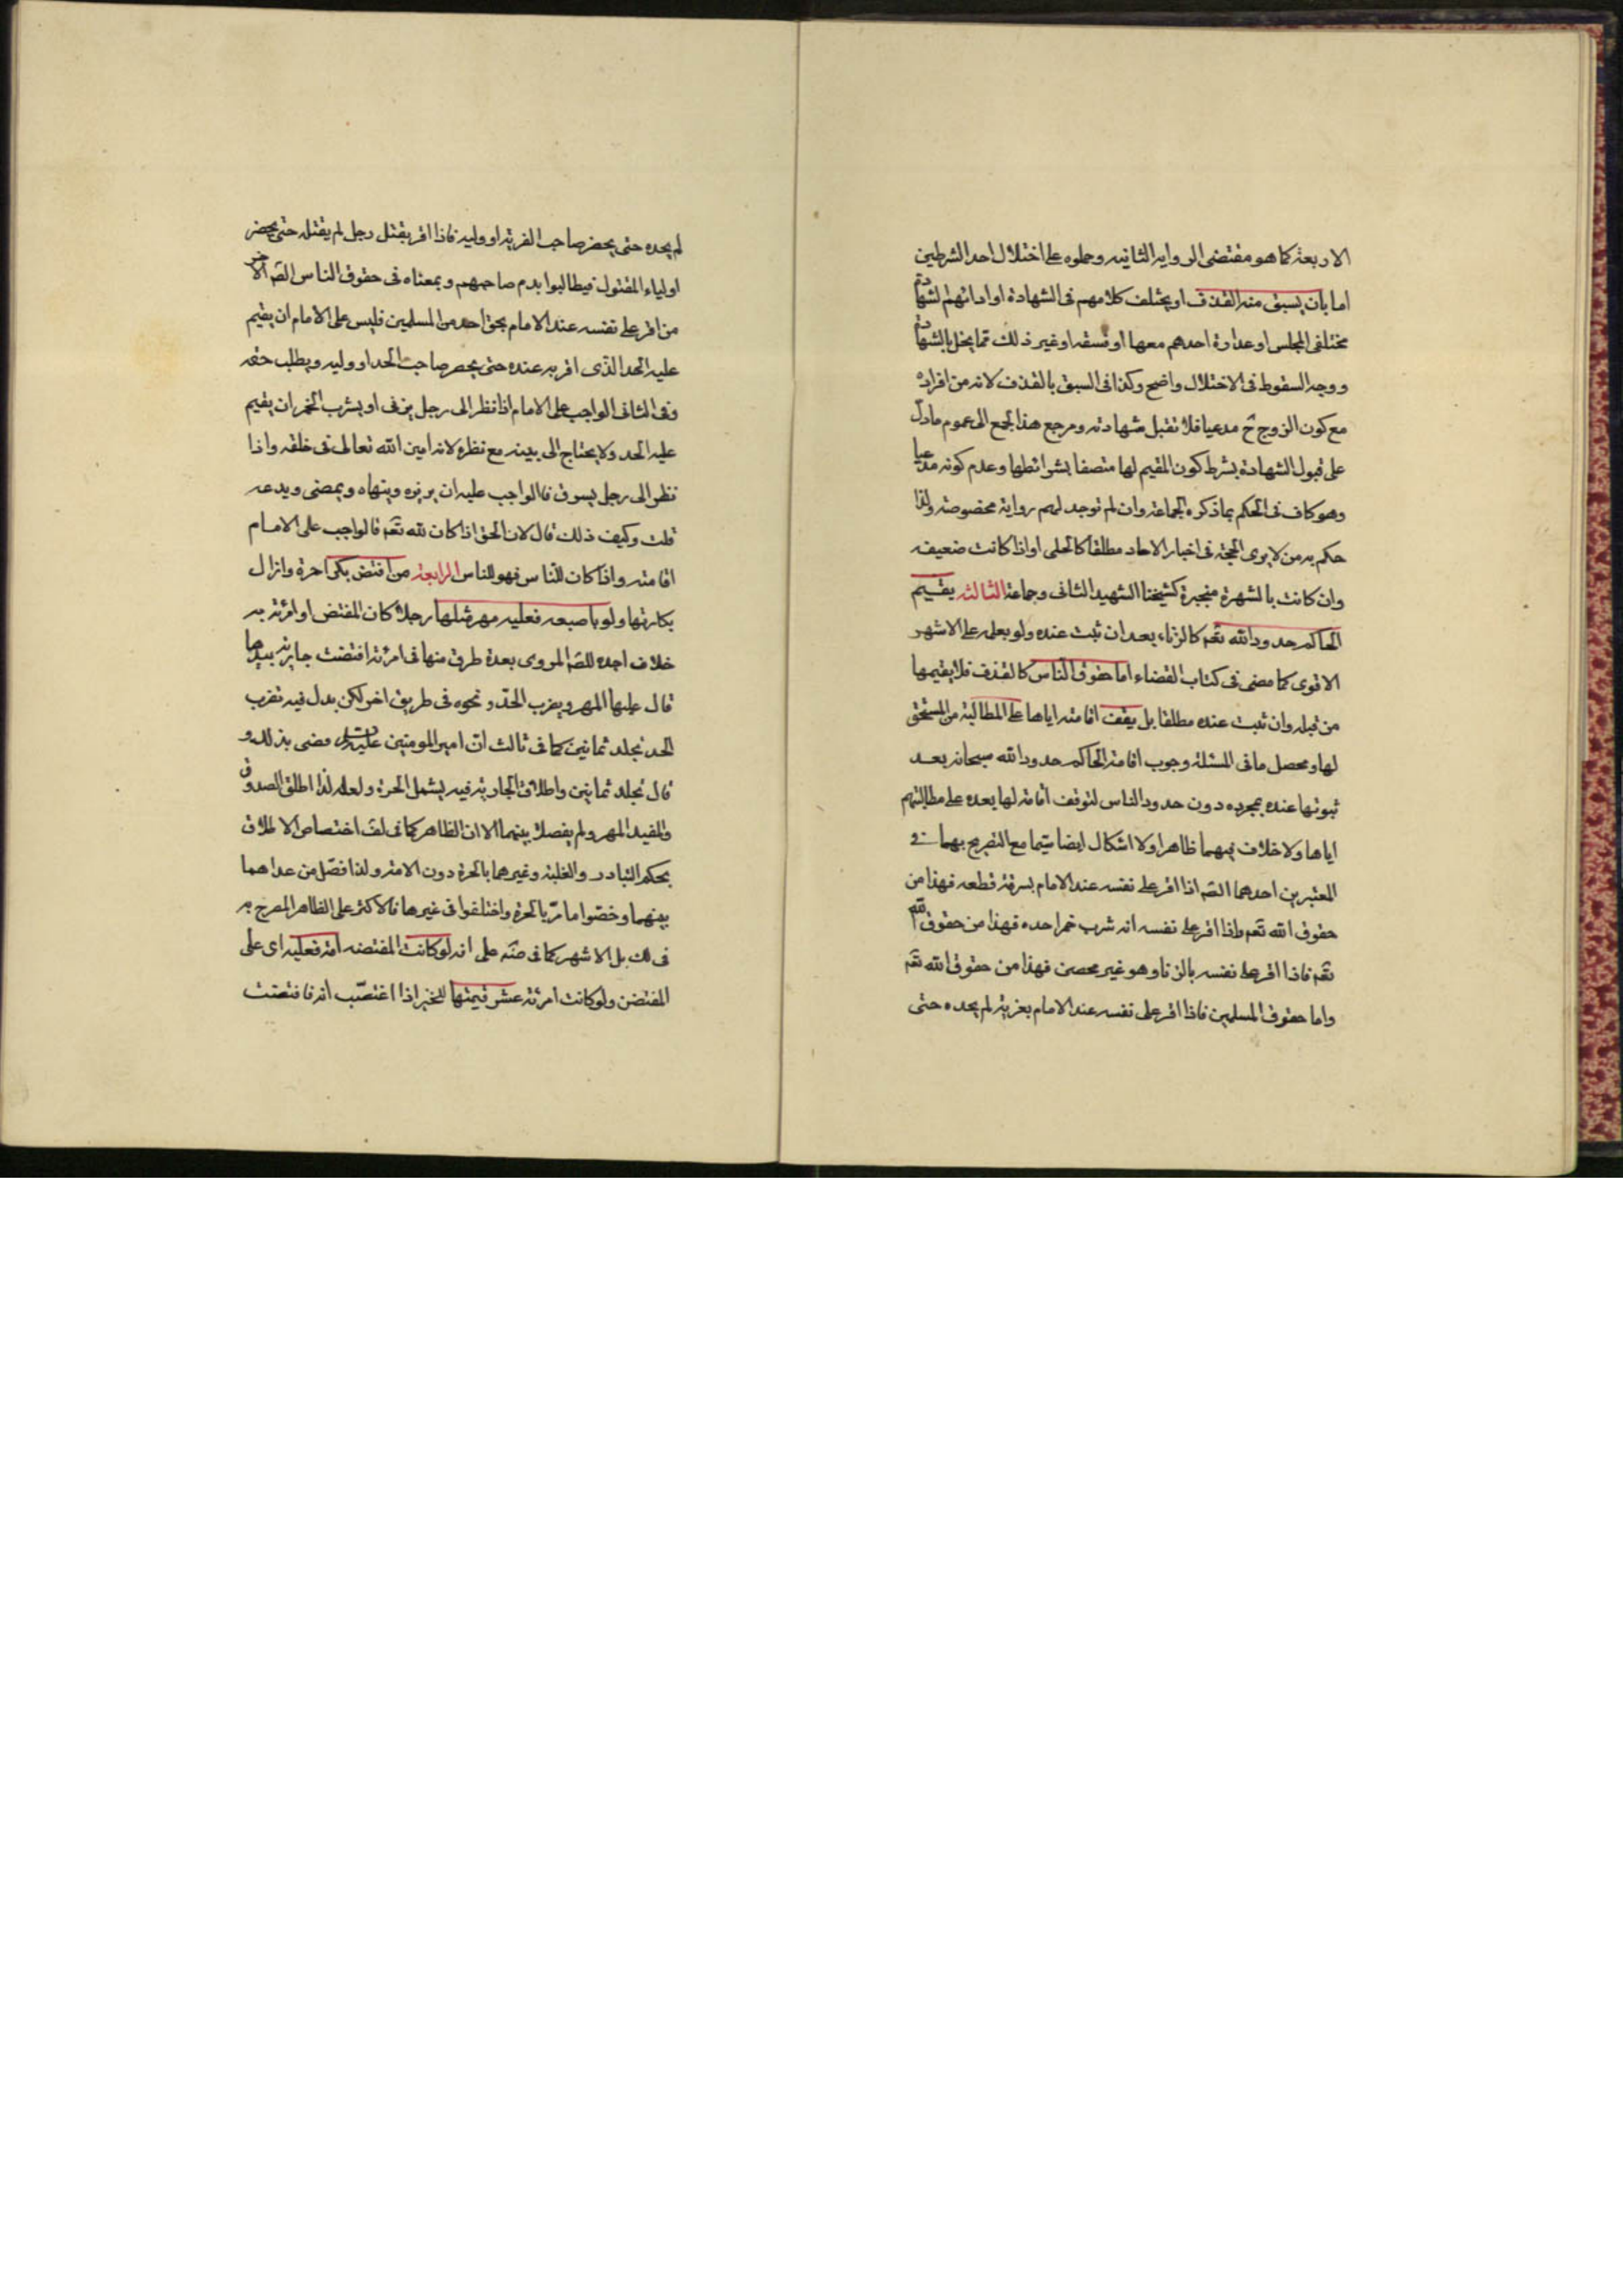 الاربعة كما هو مقتضى الرواية الثانية وحملوه على اختلال احد الشرطين
اما بان يسبق منه القذف او يختلف كلامهم فى الشهادة او ادائهم لشهادة
مختلفى المجلس او عداوة احدهم معها او فسقه او غير ذلك مما يخل بالشهادة
ووجه السقوط فى الاختلال واضح وكذا فى السبق بالقذف لانه من افراده
مع كون الزوج ح مدعيا فلا تقبل شهادته ومرجع هذا الجمع الى عموم ما دل
على قبول الشهادة بشرط كون المقيم لها متصفا بشرائطها وعدم كونه مدعيا
وهو كاف فى الحكم بما ذكره الجماعة وان لم توجد لهم رواية مخصوصة ولذا
حكم به من لا يرى الحجة فى اخبار الاحاد مطلقا كالحلى او اذا كانت ضعيفة
وان كانت بالشهرة منجبرة كشيخنا الشهيد الثانى وجماعة الثالثة يقيم
الحاكم حدود الله تعم كالزناء بعد ان ثبت عنده ولو بعلمه على الاشهر
الاقوى كما مضى فى كتاب القضاء اما حقوق الناس كالقذف فلا يقيمها
من قبله وان ثبت عنده مطلقا بل يقف اقامته اياها على المطالبة من المستحق
لها ومحصل ما فى المسئلة وجوب اقامة الحاكم حدود الله سبحانه بعد
ثبوتها عنده بمجرده دون حدود الناس لتوقف اقامته لها بعده على مطالبتهم
اياها ولا خلاف فيهما ظاهرا ولا اشكال ايضا سيما مع التصريح بهما فى
المعتبرين احدهما الصم اذا اقر على نفسه عند الامام بسرقة قطعه فهذا من
حقوق الله تعم واذا اقر على نفسه انه شرب خمرا حده فهذا من حقوق الله
تعم فاذا اقر على نفسه بالزنا وهو غير محصن فهذا من حقوق الله تعم
واما حقوق المسلمين فاذا اقر على نفسه عند الامام بفرية لم يحده حتى
لم يحده حتى يحضر صاحب الفرية او وليه فاذا اقر بقتل رجل لم يقتله حتى يحضر
اولياء المقتول فيطالبوا بدم صاحبهم وبمعناه فى حقوق الناس الصم الاخر
من اقر على نفسه عند الامام بحق احد من المسلمين فليس على الامام ان يقيم
عليه الحد الذى اقر به عنده حتى يحضر صاحب الحد او وليه ويطلب حقه
وفى الثانى الواجب على الامام اذا نظر الى رجل يزنى او يشرب الخمر ان يقيم
عليه الحد ولا يحتاج الى بينه مع نظره لانه امين الله تعالى فى خلقه واذا
نظر الى رجل يسرق فالواجب عليه ان يزبره وينهاه ويمضى ويدعه
قلت وكيف ذلك قال لان الحق اذا كان لله تعم فالواجب على الامام
اقامته واذا كان للناس فهو للناس الرابعة من افتض بكرا حرة وازال
بكارتها ولو باصبعه فعليه مهر مثلها رجلا كان المفتض او امرئة به
خلاف اجده للصم المروى بعدة طرق منها فى امرئة افتضت جارية بيدها
قال عليها المهر ويضرب الحد ونحوه فى طريق اخر لكن بدل فيه تضرب
الحد بجلد ثمانين كما فى ثالث ان امير المومنين قضى بذلك و
قال تجلد ثمانين واطلاق الجارية فيه يشمل الحرة ولعله لذا اطلق الصدوق
والمفيد المهر ولم يفصلا بينهما الا ان الظاهر كما فى لف اختصاص الاطلاق
بحكم التبادر والغلبة وغيرهما بالحرة دون الامة ولذا فصل من عداهما
بينهما وخصوا ما مر بالحرة واختلفوا فى غيرها فالاكثر على الظاهر المصرح به
فى لك بل الاشهر كما فى ضه على انه لو كانت المفتضه امة فعليه اى على
المفتض ولو كانت امرئة عشر قيمتها للخبر اذا اغتصب امة فافتضت